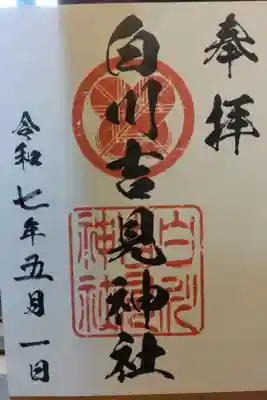 奉拝
白川吉見神社
令和七年五月一日